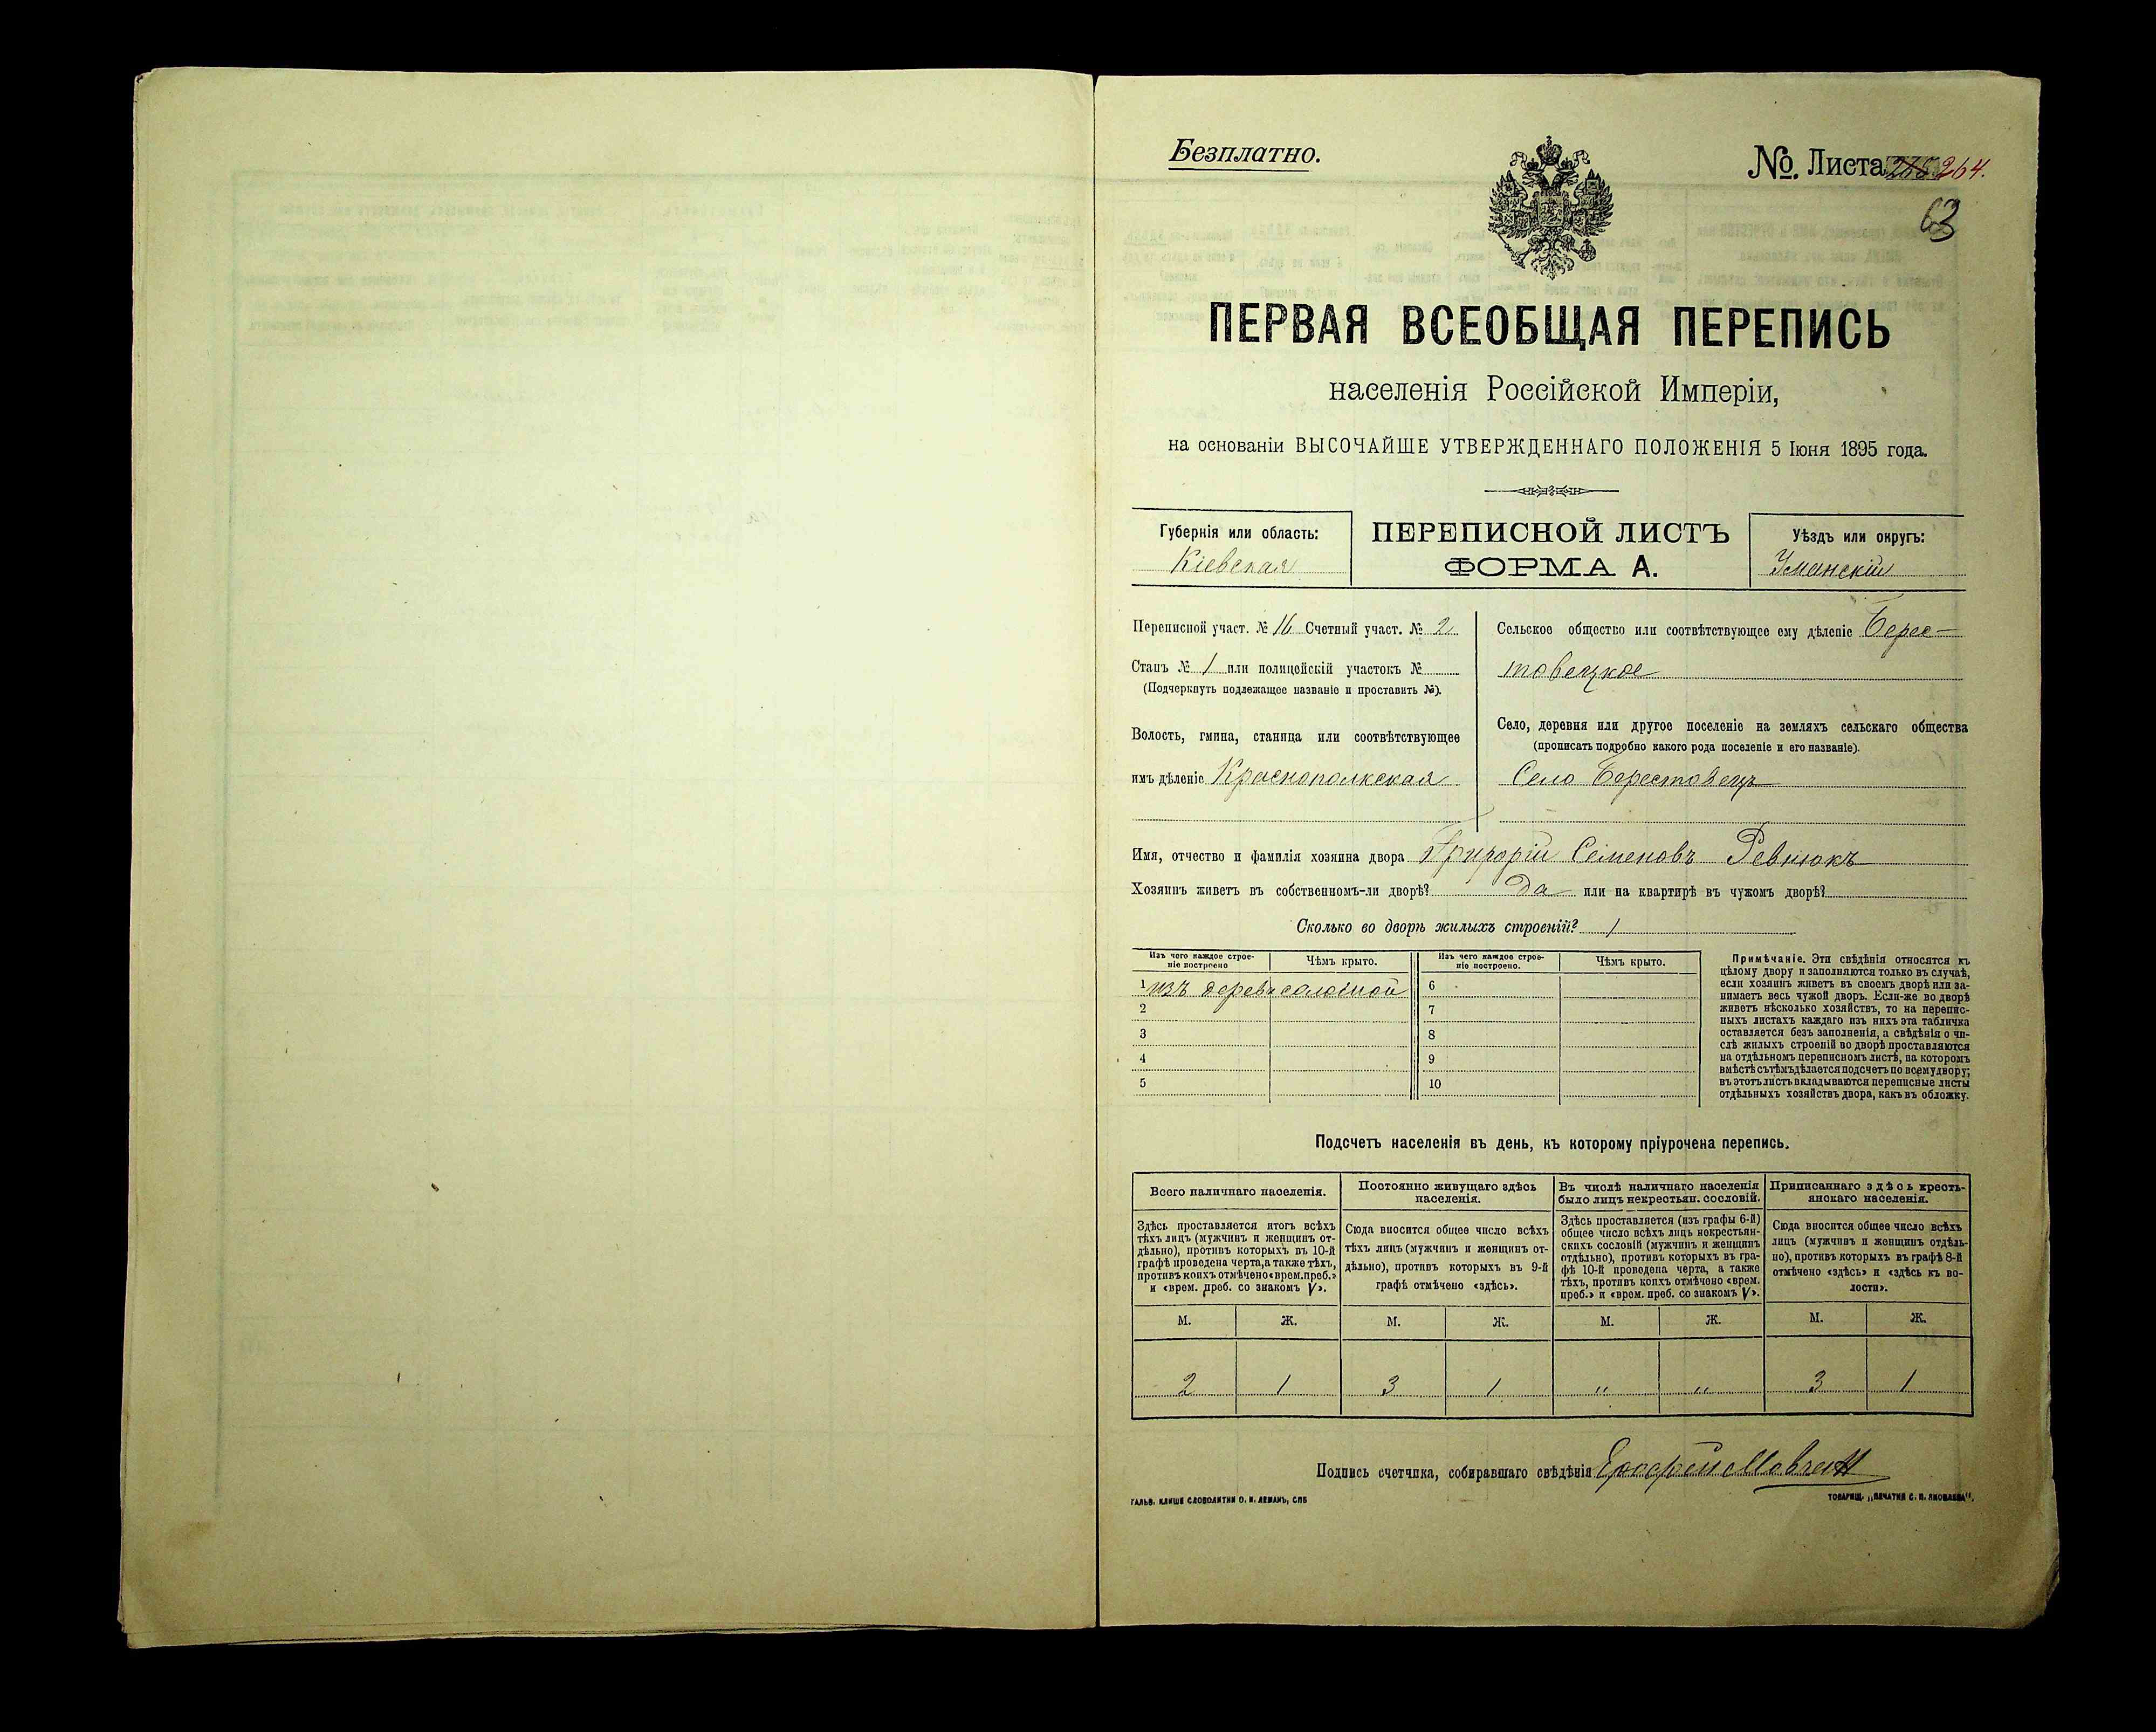 Безплатно.
№. Листа 264.
63
ПЕРВАЯ ВСЕОБЩАЯ ПЕРЕПИСЬ
населенія Россійской Имперіи,
на основаніи ВЫСОЧАЙШЕ УТВЕРЖДЕННАГО ПОЛОЖЕНІЯ 5 Іюня 1895 года.
Губернія или область:
Кіевская
ПЕРЕПИСНОЙ ЛИСТЪ
ФОРМА А.
Уѣздъ или округъ:
Уманскій
Переписной участ. № 16 Счетный участ. № 2
Станъ № 1 или полицейскій участокъ №
(Подчеркнуть подлежащее названіе и проставить №).
Волость, гмина, станица или соотвѣтствующее
имъ дѣленіе Краснополкская
Сельское общество или соотвѣтствующее ему дѣленіе Берес-
товецкое
Село, деревня или другое поселеніе на земляхъ сельскаго общества
(прописать подробно какого рода поселеніе и его названіе).
Село Берестовецъ
Имя, отчество и фамилія хозяина двора Григорій Семеновъ Ревнюкъ
Хозяинъ живетъ въ собственномъ-ли дворѣ? Да или на квартирѣ въ чужомъ дворѣ?
Сколько во дворѣ жилыхъ строеній? 1
Изъ чего каждое строе-
ніе построено
Чѣмъ крыто.
Изъ чего каждое строе-
ніе построено.
Чѣмъ крыто.
1 изъ дерева соломой
2
3
4
5
6
7
8
9
10
Примѣчаніе. Эти свѣдѣнія относятся къ
цѣлому двору и заполняются только въ случаѣ,
если хозяинъ живетъ въ своемъ дворѣ или за-
нимаетъ весь чужой дворъ. Если-же во дворѣ
живетъ нѣсколько хозяйствъ, то на перепис-
ныхъ листахъ каждаго изъ нихъ эта табличка
оставляется безъ заполненія, а свѣдѣнія о чи-
слѣ жилыхъ строеній во дворѣ проставляются
на отдѣльномъ переписномъ листѣ, на которомъ
вмѣстѣ съ тѣмъ дѣлается подсчетъ по всему двору;
въ этотъ листъ вкладываются переписные листы
отдѣльныхъ хозяйствъ двора, какъ въ обложку.
Подсчетъ населенія въ день, къ которому пріурочена перепись.
Всего наличнаго населенія.
Здѣсь проставляется итогъ всѣхъ
тѣхъ лицъ (мужчинъ и женщинъ от-
дѣльно), противъ которыхъ въ 10-й
графѣ проведена черта, а также тѣхъ,
противъ коихъ отмѣчено «врем. преб.»
и «врем. преб. со знакомъ V».
Постоянно живущаго здѣсь
населенія.
Сюда вносится общее число всѣхъ
тѣхъ лицъ (мужчинъ и женщинъ от-
дѣльно), противъ которыхъ въ 9-й
графѣ отмѣчено «здѣсь».
Въ числѣ наличнаго населенія
было лицъ некрестьян. сословій.
Здѣсь проставляется (изъ графы 6-й)
общее число всѣхъ лицъ некрестьян-
скихъ сословій (мужчинъ и женщинъ
отдѣльно), противъ которыхъ въ гра-
фѣ 10-й проведена черта, а также
тѣхъ, противъ коихъ отмѣчено «врем.
преб.» и «врем. преб. со знакомъ V».
Приписаннаго здѣсь кресть-
янскаго населенія.
Сюда вносится общее число всѣхъ
лицъ (мужчинъ и женщинъ отдѣль-
но), противъ которыхъ въ графѣ 8-й
отмѣчено «здѣсь» и «здѣсь къ во-
лости».
М. Ж. М. Ж. М. Ж. М. Ж.
2 1 3 1 " " 3 1
Подпись счетчика, собиравшаго свѣдѣнія
ГАЛЬВ. КЛИШЕ СЛОВОЛИТНИ О. И. ЛЕМАНЪ, СПБ
ТОВАРИЩ. „ПЕЧАТНЯ С. П. ЯКОВЛЕВА".